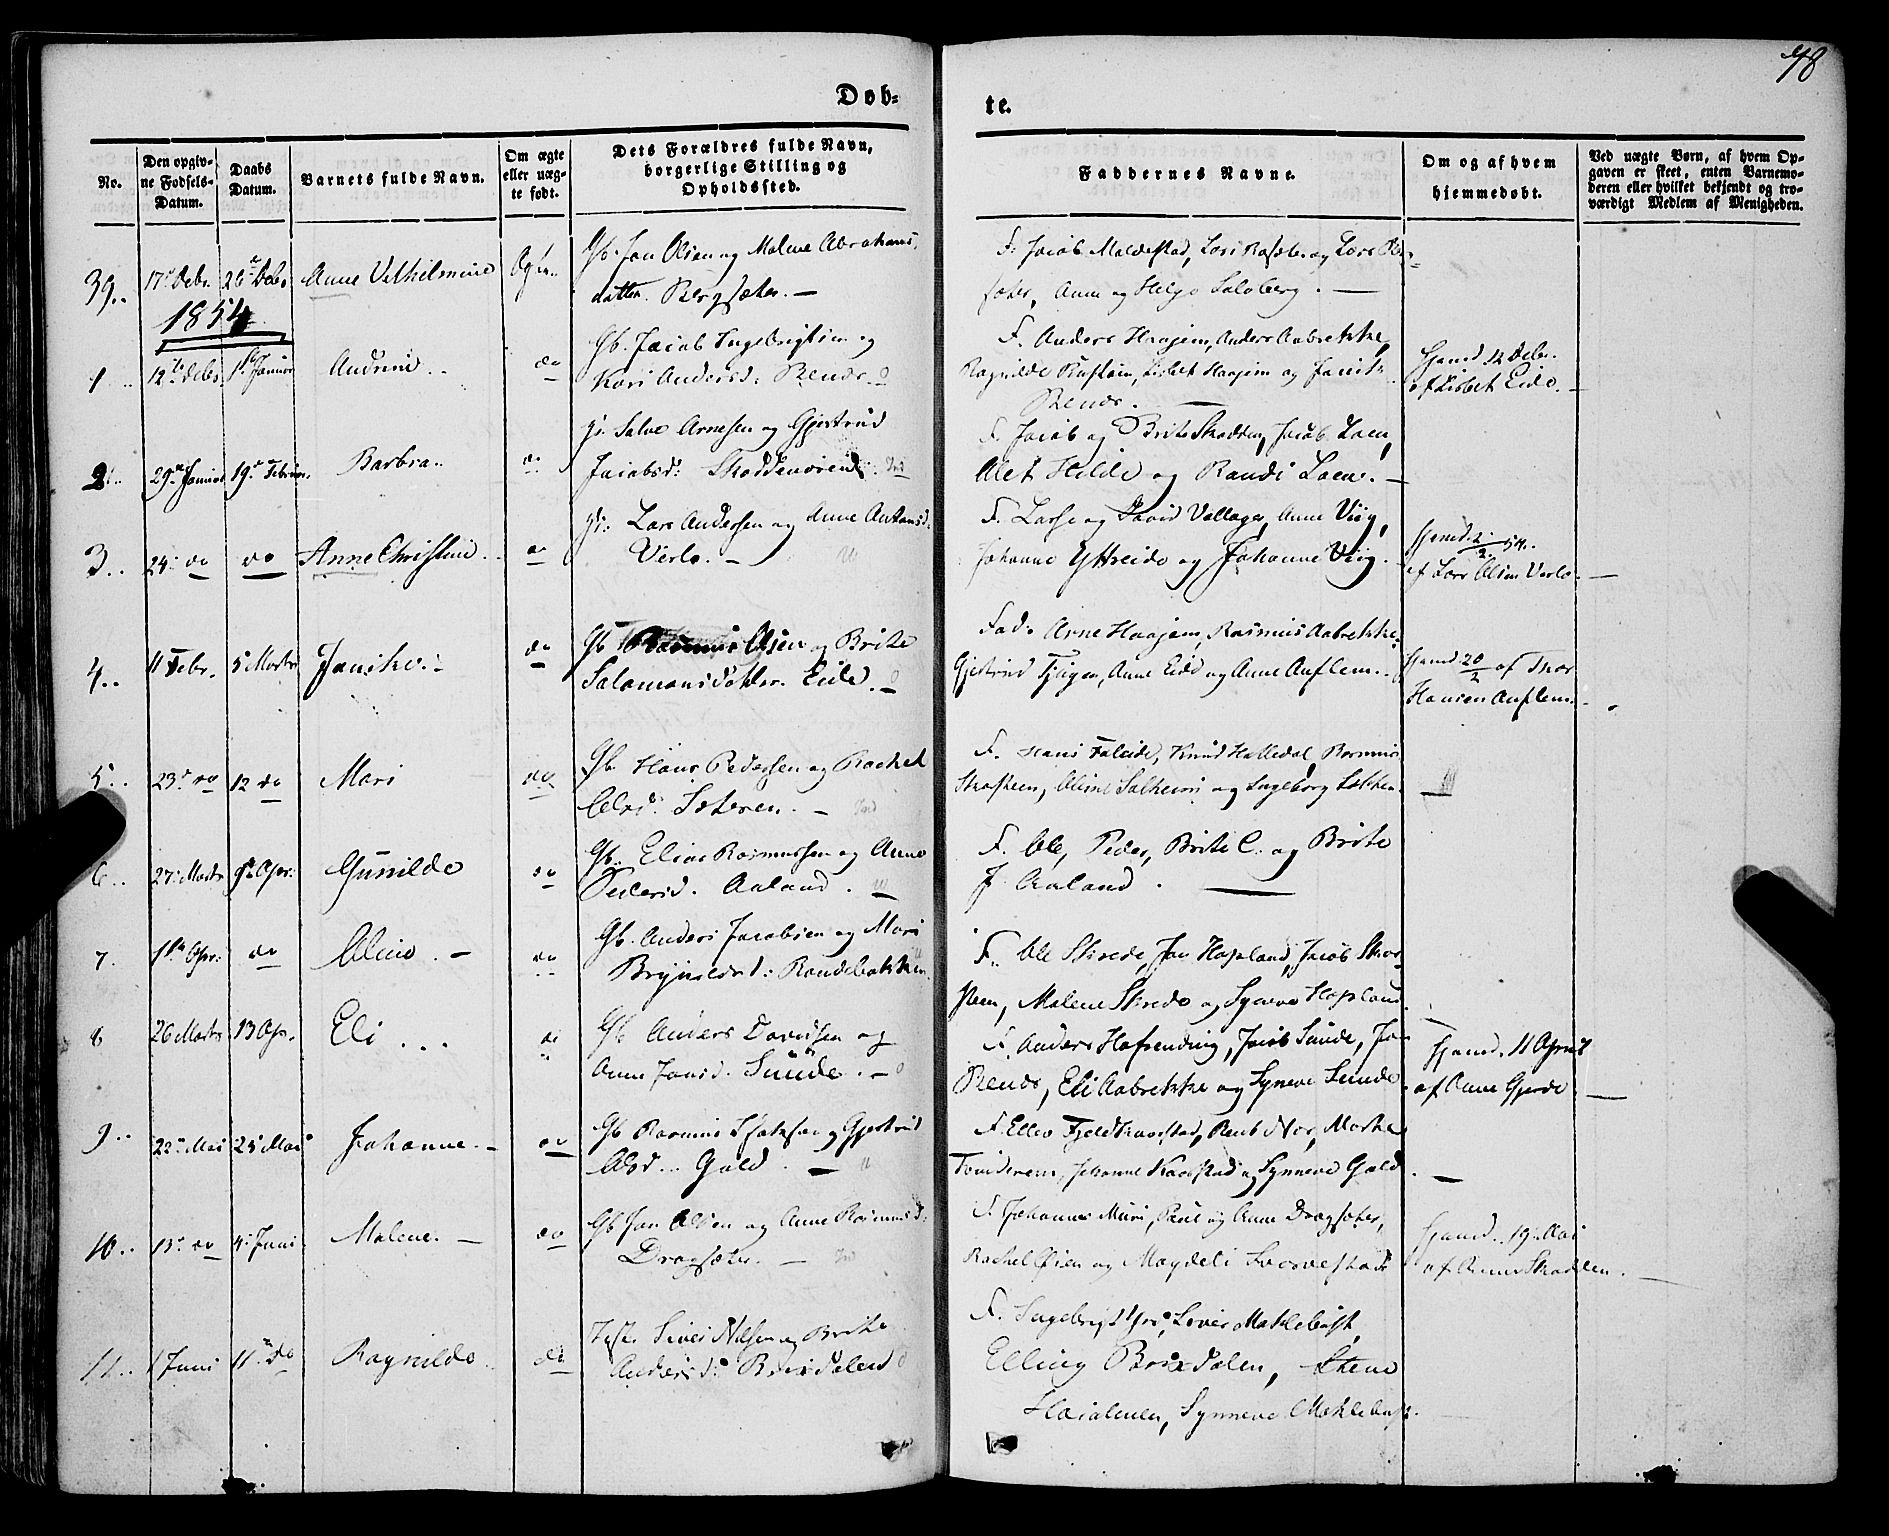 98
Døb-
te.
No.
Den opgiv-
ne Fødsels-
Datum.
Daabs
Datum.
Barnets fulde Navn.
Om ægte
eller uæg-
te født.
Dets Forældres fulde Navn,
borgerlige Stilling og
Opholdssted.
Faddernes Navne.
Om og af hvem
hjemmedøbt.
Ved uægte Børn, af hvem Op-
gaven er skeet, enten Barnemo-
deren eller hvilket bekjendt og tro-
værdigt Medlem af Menigheden.
39.. 17. Debr. 26. Debr. Anne Vilhelmine Ægte. Gb. Jon Olsen og Malene Abrahams
datter. Bergsæter. —
F. Jacob Maldestad, Lars og Lars
sæter, Anne og Helge Solberg. —
1854
1 .. 12te Debr. 1ste Januar Audune .. do Gb. Jacob Ingebrigtsen og
Kari Andersd: Rends.
F. Anders Haajem, Anders Aabrekke,
Ragnilde, Lisbet Haajem og
Rends. —
Hjemd 12 Debr.
af Lisbet Eide. —
2. .. 29. Januar 19. Februar. Barbra .. do Salve Arnesen og Gjertrud
Jacobsd: Skoddenøren
F. Jacob og Brite Skodden, Jacob Loen,
Alet Hilde og Randi Loen. —
3. . 24. do do Anne Christine . do Lars Andersen og Anne Antonsd:
Verlo. —
F. Lasse og David Vallager, Anne Viig,
Johanne Yttreide og Johanne Viig. —
Hjemd 2/2 54.
af Lars Olsen Verlo. —
4.. 11 Febr. 5 Marts Jonike .- do Gb Rasmus Olsen og Brite
Salamonsdatter. Eide. —
Fad. Arne Haajem, Rasmus Aabrekke,
Gjertrud, Anne Eide og Anne Auflem.
Hjemd 20/2 af Thor
Hansen Auflem.
5. . 23. do 12 do Mari do Gb. Hans Pedersen og Rachel
Olsd: Sæteren. —
F. Hans Faleide, Knud Halledal, Rasmus
Skaasteen, Oline Solheim og Ingeborg
6. . 27. Marts 9de Apr: Gunilde do Gb. Elias Rasmussen og Anne
Pedersd. Aaland. —
F. Ole, Peder, Brite C. og Brite
J. Aaland. —
7. 1ste Apr: do Oline. — do Gb. Anders Jacobsen og Mari
Brynildsd: Raudebakken
F. Ole Skrede, Jon Hopland, Jacob Skaa-
steen, Malene Skrede og Synneve Hopland
8 26 Marts 13 Apr. Eli ... do Gb Anders Davidsen og
Anne Jonsd. Sunde. —
F. Anders Hafrending, Jacob Sunde,
Rends, Eli Aabrekke og Synneve Sunde
Hjemd. 11 April
af Anne Gjerde. —
9 .. 22. Mai 25. Mai Johanne. — do Gb Rasmus og Gjertrud
Olsd... Gald. —
F. Ellev Fjeldkaarstad, Rent Nos, Marthe
Tvindereim, Johanne Kaarstad og Synneve Gald. —
10.. 13. do 4. Juni Malene. — do Gb Jon Olsen og Anne Rasmusd:
Dragsæter. —
F. Johannes Muri, Paul og Anne Dragsæter,
Rachel Øien og Magdeli Svorestad
Hjemd. 19. Mai
af Anne Skadlen. —
11.. 1 Juni 11. do Ragnilde . do Siver Nilsen og Brite
Andersd: Brixdalen
F. Ingebrigt, Siver Meklebust,
Elling Brixdalen, Stene
, Synneve Meklebust.